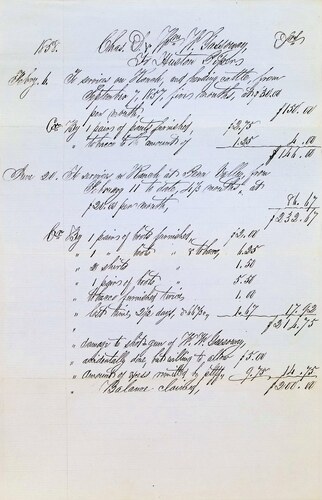 1858. Chas. D. & Wm. W. Gassaway, Drs
To Huston Bivens
Feby. 6. To services on Ranch, and herding cattle, from
September 7, 1857, five months, at $30.00
per month, $150.00
Cr By 1 pairs of pants furnished $2.75
" tobacco to the amounts of 1.25 4.00
$146.00
June 20. To services on Ranch at Bear Valley, from
February 11 to date, 4 1/3 months, at
$20.00 per month, 86.67
$232.67
Cr By 1 pairs of boots furnished $2.00
" 1 " boots " & tobacco, 6.25
" 2 shirts " 1.50
" 1 pairs of boots 5.50
" tobacco furnished twice 1.00
" lost time, 2 1/2 days, @ 66 2/3 1.67 17.92
$214.75
" damage to shot gun of W. W. Gassaway,
accidentally done, but willing to allow $5.00
" amounts of expenses 9.75 14.75
Balance claimed, $200.00